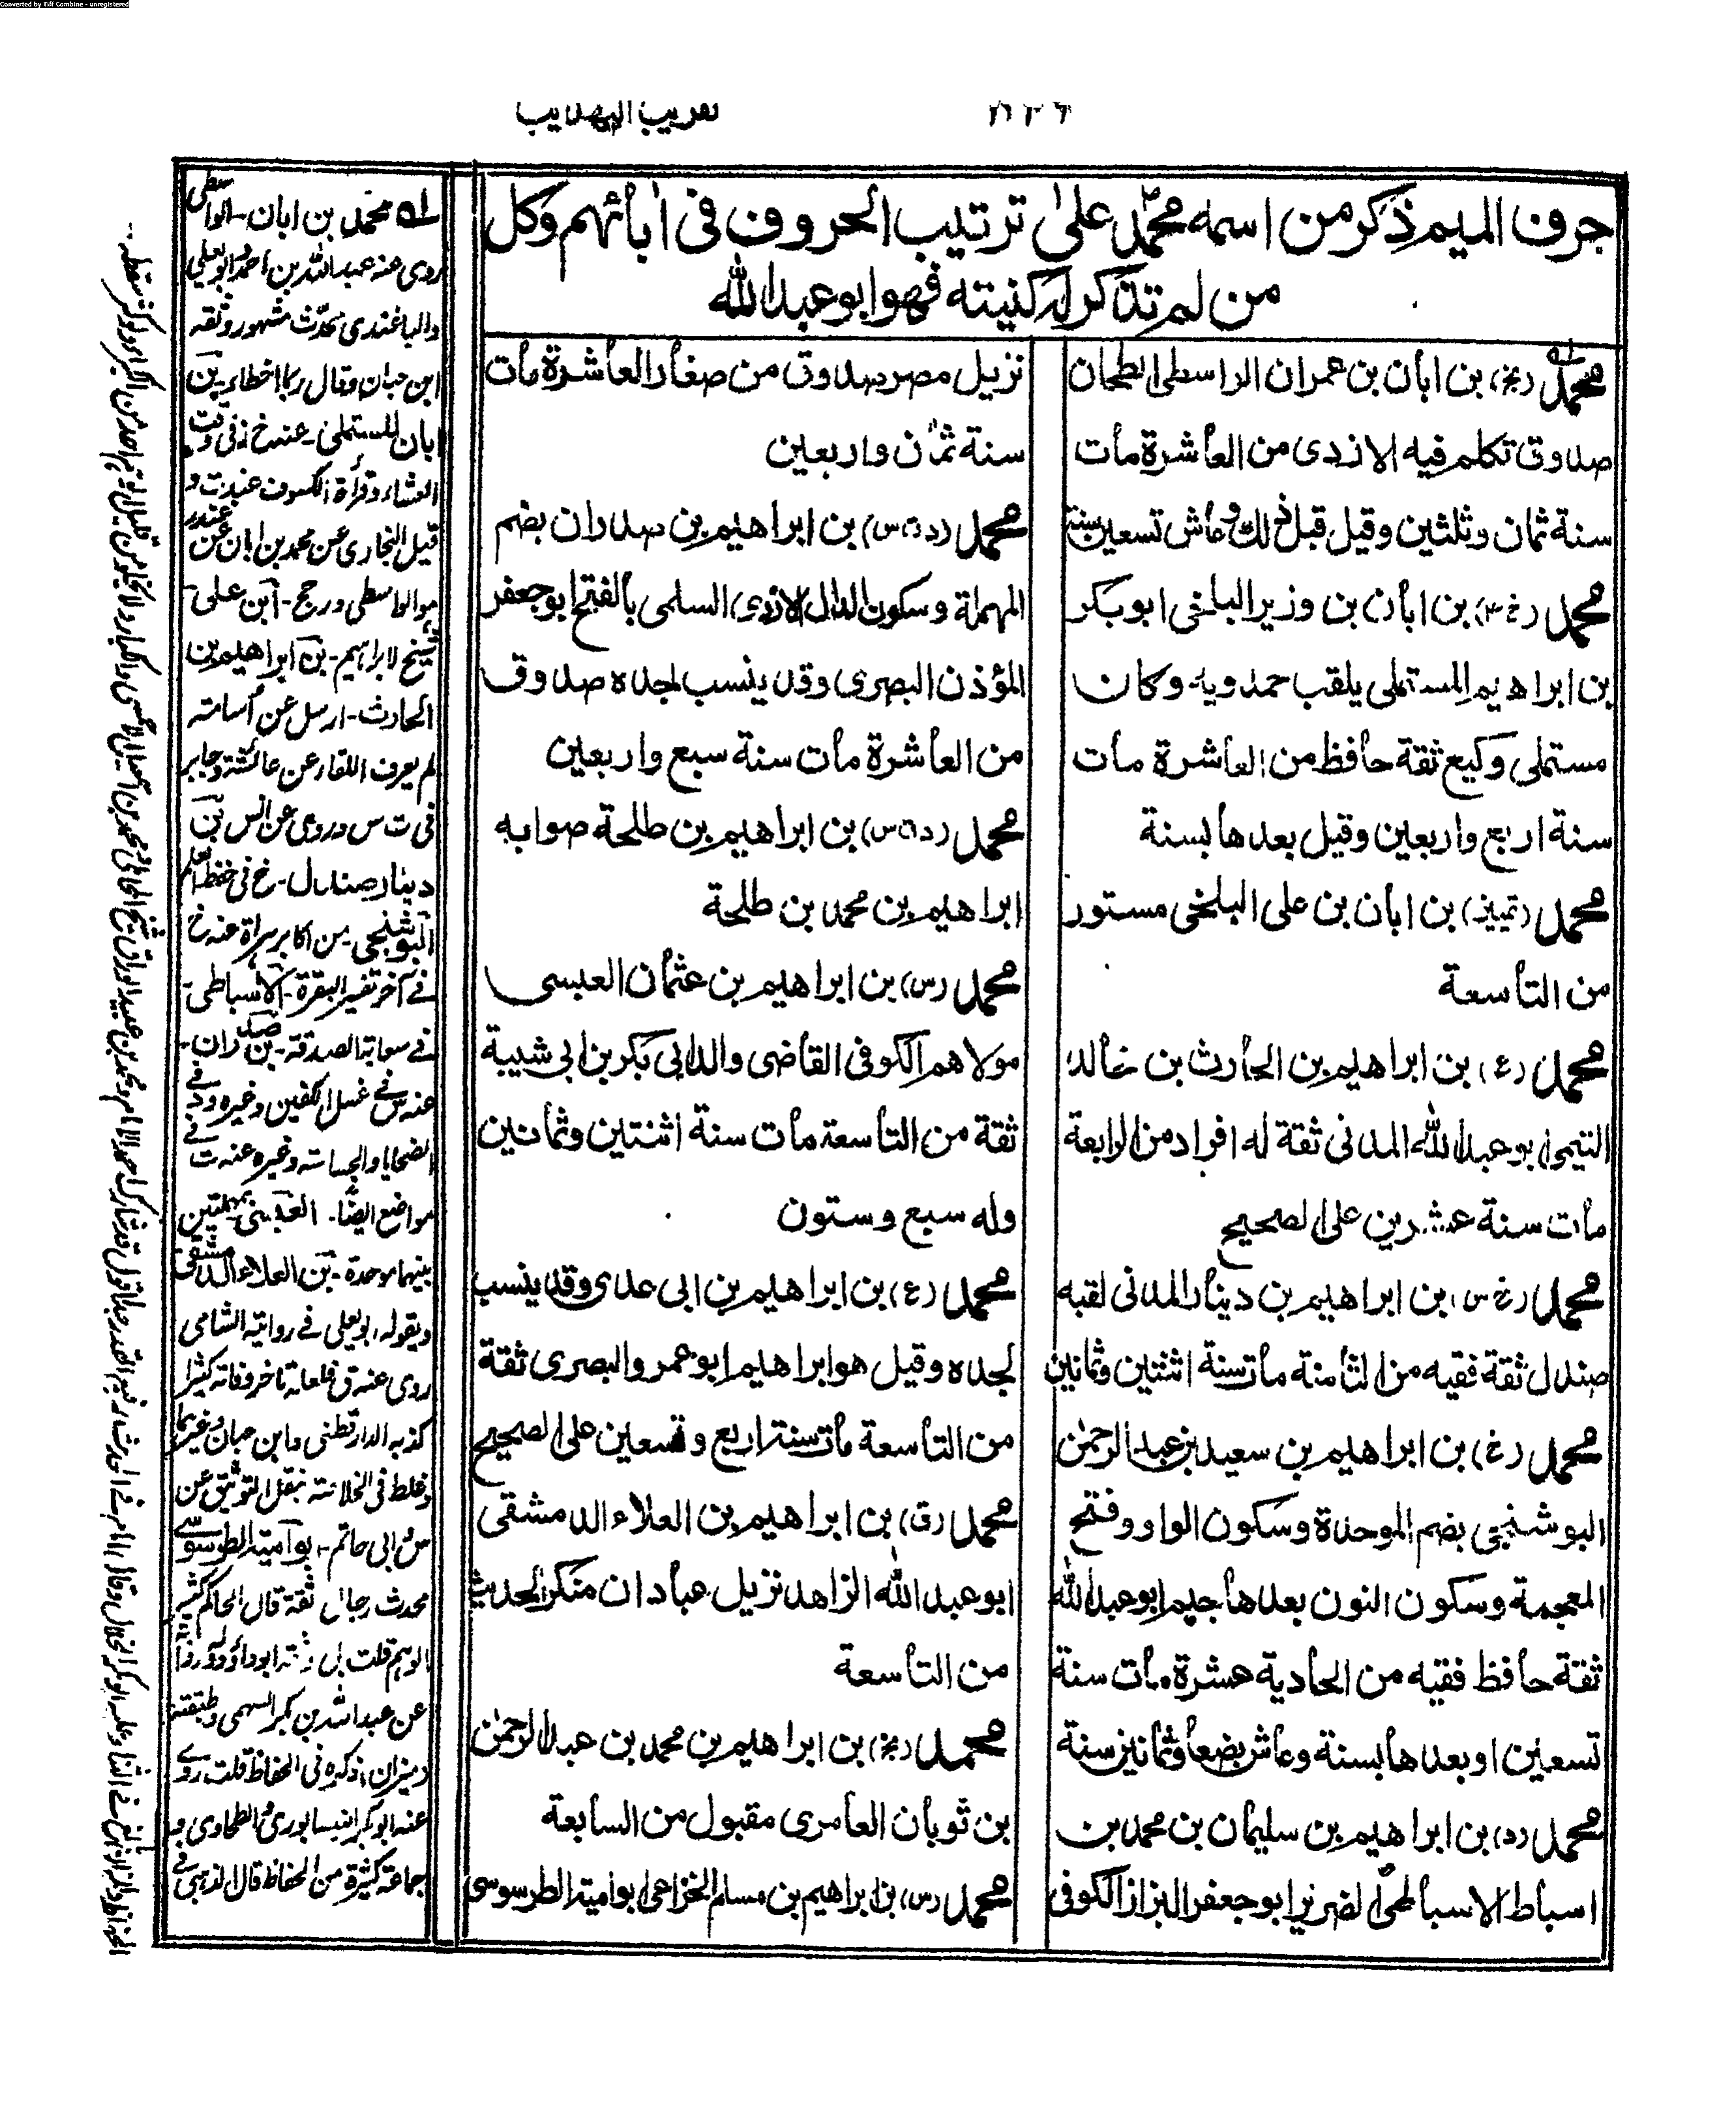 Converted by Tiff Combine - unregistered
تقريب التهذيب
حرف الميم ذكر من اسمه محمد على ترتيب الحروف فى اٰبائهم وكل
من لم تذكر له كنيته فهو ابو عبدالله
محمد (بخ) بن ابان بن عمران الواسطى الطحان
صدوق تكلم فيه الازدى من العاشرة مات
سنة ثمان وثلثين وقيل قبل ذلك وعاش تسعين سنة
محمد (خ ٤) بن ابان بن وزير البلخى ابو بكر
بن ابراهيم المستملى يلقب حمدويه وكان
مستملى وكيع ثقة حافظ من العاشرة مات
سنة اربع واربعين وقيل بعدها بسنة
محمد (تمييز) بن ابان بن على البلخى مستور
من التاسعة
محمد (ع) بن ابراهيم بن الحارث بن خالد
التيمى ابو عبدالله المدنى ثقة له افراد من الرابعة
مات سنة عشرين على الصحيح
محمد (خ س) بن ابراهيم بن دينار المدنى لقبه
صندل ثقة فقيه من الثامنة مات سنة اثنتين وثمانين
محمد (خ) بن ابراهيم بن سعيد بن عبد الرحمٰن
البوشنجى بضم الموحدة وسكون الواو وفتح
المعجمة وسكون النون بعدها جيم ابو عبدالله
ثقة حافظ فقيه من الحادية عشرة مات سنة
تسعين او بعدها بسنة وعاش بضعا وثمانين سنة
محمد (د) بن ابراهيم بن سليمان بن محمد بن
اسباط الاسباطى الضرير ابو جعفر البزاز الكوفى
نزيل مصر صدوق من صغار العاشرة مات
سنة ثمان واربعين
محمد (د ت س) بن ابراهيم بن صدران بضم
المهملة وسكون الدال الازدى السلمى بالفتح ابو جعفر
المؤذن البصرى وقد ينسب لجده صدوق
من العاشرة مات سنة سبع واربعين
محمد (د ت س) بن ابراهيم بن طلحة صوابه
ابراهيم بن محمد بن طلحة
محمد (س) بن ابراهيم بن عثمان العبسى
مولاهم الكوفى القاضى والد ابى بكر بن ابى شيبة
ثقة من التاسعة مات سنة اثنتين وثمانين
وله سبع وستون
محمد (ع) بن ابراهيم بن ابى عدى وقد ينسب
لجده وقيل هو ابراهيم ابو عمرو البصرى ثقة
من التاسعة مات سنة اربع وتسعين على الصحيح
محمد (ق) بن ابراهيم بن العلاء الدمشقى
ابو عبد الله الزاهد نزيل عبادان منكر الحديث
من التاسعة
محمد (بخ) بن ابراهيم بن محمد بن عبد الرحمٰن
بن ثوبان العامرى مقبول من السابعة
محمد (س) بن ابراهيم بن مسلم الخزاعى ابو امية الطرسوسى
محمد بن ابان - الواسطى
روى عنه عبد الله بن احمد وابو يعلى
والباغندى محدث مشهور وثقه
ابن حبان وقال ربما اخطاء - بن
ابان المستملى - عنه خ فى وقت
العشاء وقرأة الكسوف
قيل البخارى عن محمد بن ابان عن غندر
هو الواسطى ورجح - ابن على -
شيخ لابراهيم - بن ابراهيم بن
الحارث - ارسل عن أسامة
لم يعرف اللقاء عن عائشة وجابر
فى ت س وروى عن انس بن
دينار صندل - خ فى حفظ العلم
البوشنجى - من اكابر عنه خ
فى آخر تفسير البقرة - الاسباطى -
فى الصدقة - بن صدران -
عنه س فى غسل الكفين وغيره و د فى
الضحايا والجساسة وغيره عنه ت فى
مواضع ايضًا - العبسى بمهملتين
بينهما موحدة - بن العلاء الدمشقى
ويقوله ابو يعلى فى رواية الشامى
روى عنه ق فلعله تاخر وفاته كثيرا
كذبه الدارقطنى وابن حبان وغيرهما
وغلط فى الخلاصة بنقل التوثيق عن
س وابى حاتم - ابو امية الطرسوسى
محدث رجال ثقة قال الحاكم كثير
الوهم قلت بل وثقه ابو داؤد
عن عبد الله بن بكر السهمى وطبقته
ذكره فى الحفاظ قلت روى
عنه ابو بكر النيسابورى والطحاوى و
جماعة كثيرة من الحفاظ قال الذهبى فى